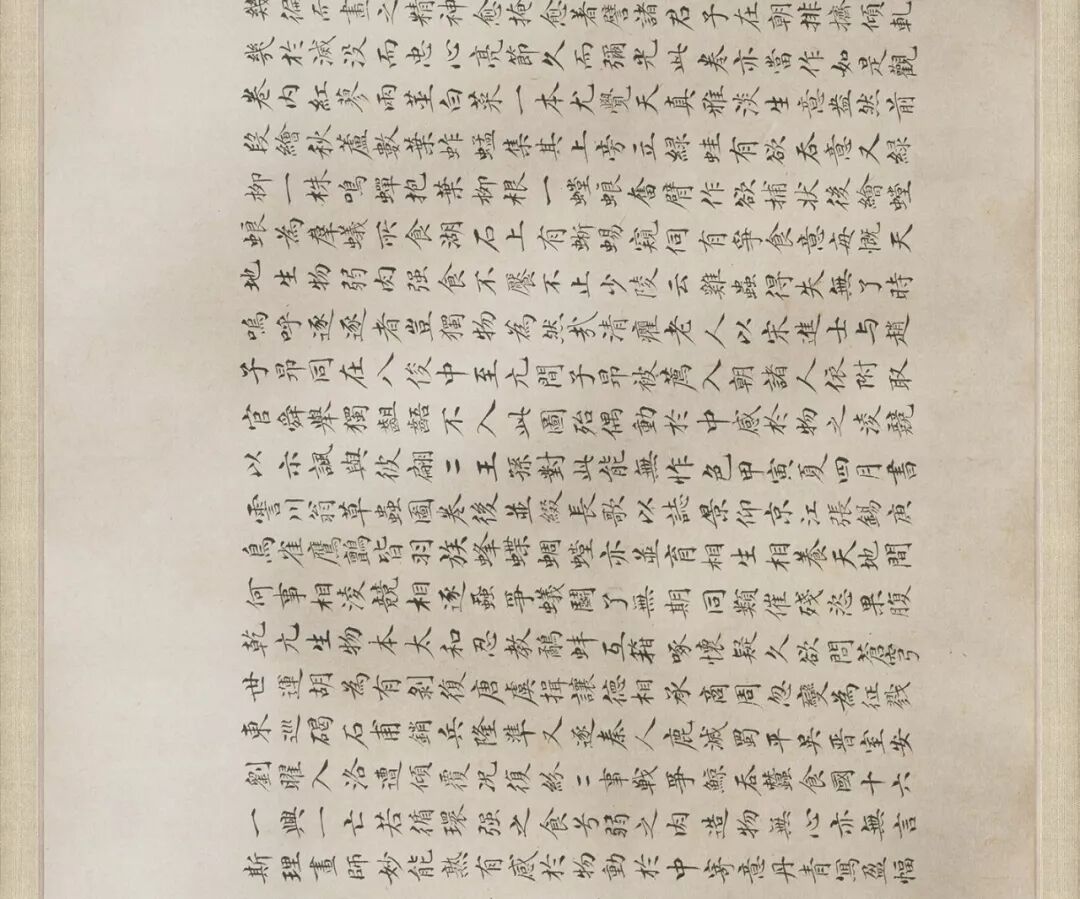 幾徧而畫之精神愈掩愈著譬諸君子在朝排擠傾軋
幾於滅没而忠心亮節久而彌光此卷亦當作如是觀
卷内紅蓼兩莖白菜一本尤覺天真雅淡生意盎然前
段繪秋蘆數葉蚱蜢集其上旁立緑蛙有欲吞意又緑
柳一株鳴蟬抱葉柳根一螳蜋奮臂作欲捕狀後繪螳
蜋為羣蟻所食湖石上有蜥蜴窺伺有爭食意毎慨天
地生物弱肉强食不饜不止少陵云雞蟲得失無了時
嗚呼逐逐者豈獨物為然㢤清癯老人以宋進士与趙
子昂同在八俊中至元間子昂被薦入朝諸人依附取
官舜舉獨齟齬不入此圖殆偶動於中感於物之淩競
以示諷與彼翩二王孫對此能無怍色甲寅夏四月書
霅川翁草蟲圖卷後並綴長歌以誌景仰京江張錫庚
鳥雀鷹鸇皆羽族蜂蝶蜩螗亦並育相生相養天地間
何事相淩競相逐蝨爭蟻鬭了無期同類催殘恣果腹
乾元生物本太和忍教鷸蚌互箝啄懷疑久欲問蒼穹
世運胡為有剝復唐虞揖讓德相承商周忽變為征戮
東巡碣石甫銷兵隆準又逐秦人鹿滅蜀平吳晋室安
劉曜入洛遭傾覆况復紛二事戰爭鯨吞蠶食國十六
一興一亡若循環强之食兮弱之肉造物無心亦無言
斯理畫師妙能熟有感於物動於中寄意丹青寫盈幅